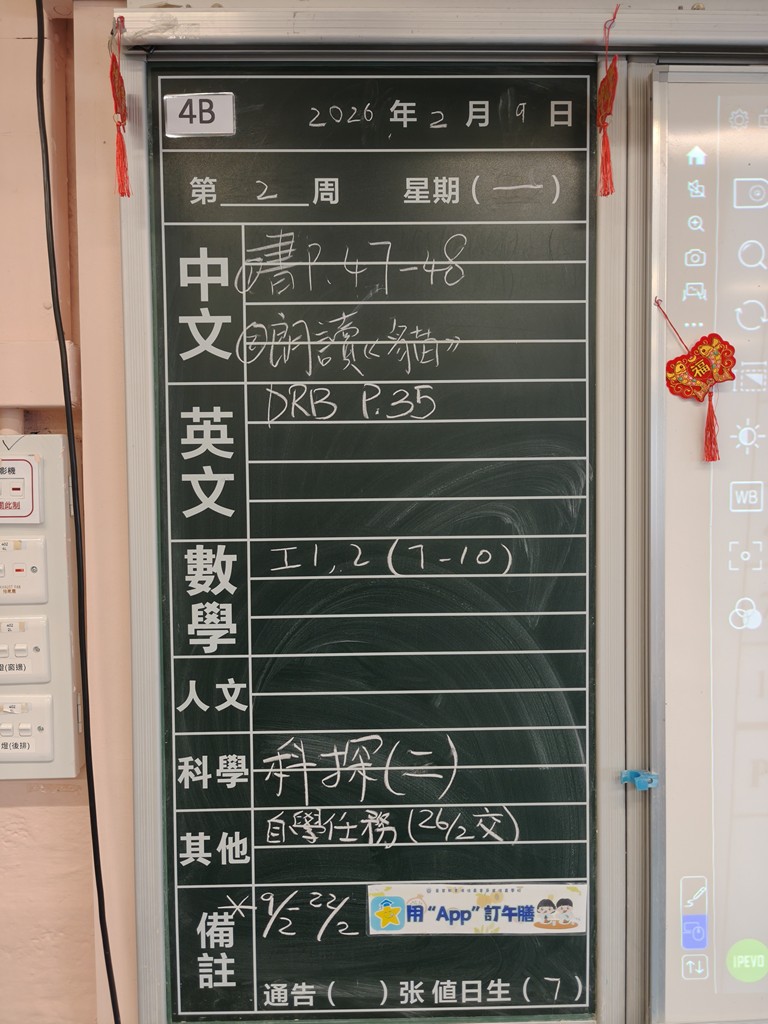 4B
2026 年 2 月 9 日
第 2 周 星期 ( 一 )
中文
①書P.47-48
②朗讀《貓》
英文
DRB P.35
數學
工1,2 (7-10)
人文
科學
科探(二)
其他
自學任務 (26/2交)
備註
*9/2 22/2
用“App”訂午膳
通告 ( ) 张 值日生 ( 7 )
福
WB
IPEVO
影機
燈(窗邊)
燈(後排)